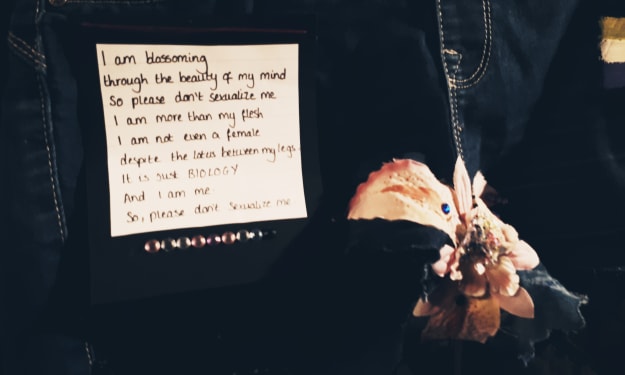 I am blossoming
through the beauty of my mind
So please don't sexualize me
I am more than my flesh
I am not even a female
despite the lotus between my legs.
It is just BIOLOGY
And I am me.
So, please don't sexualize me